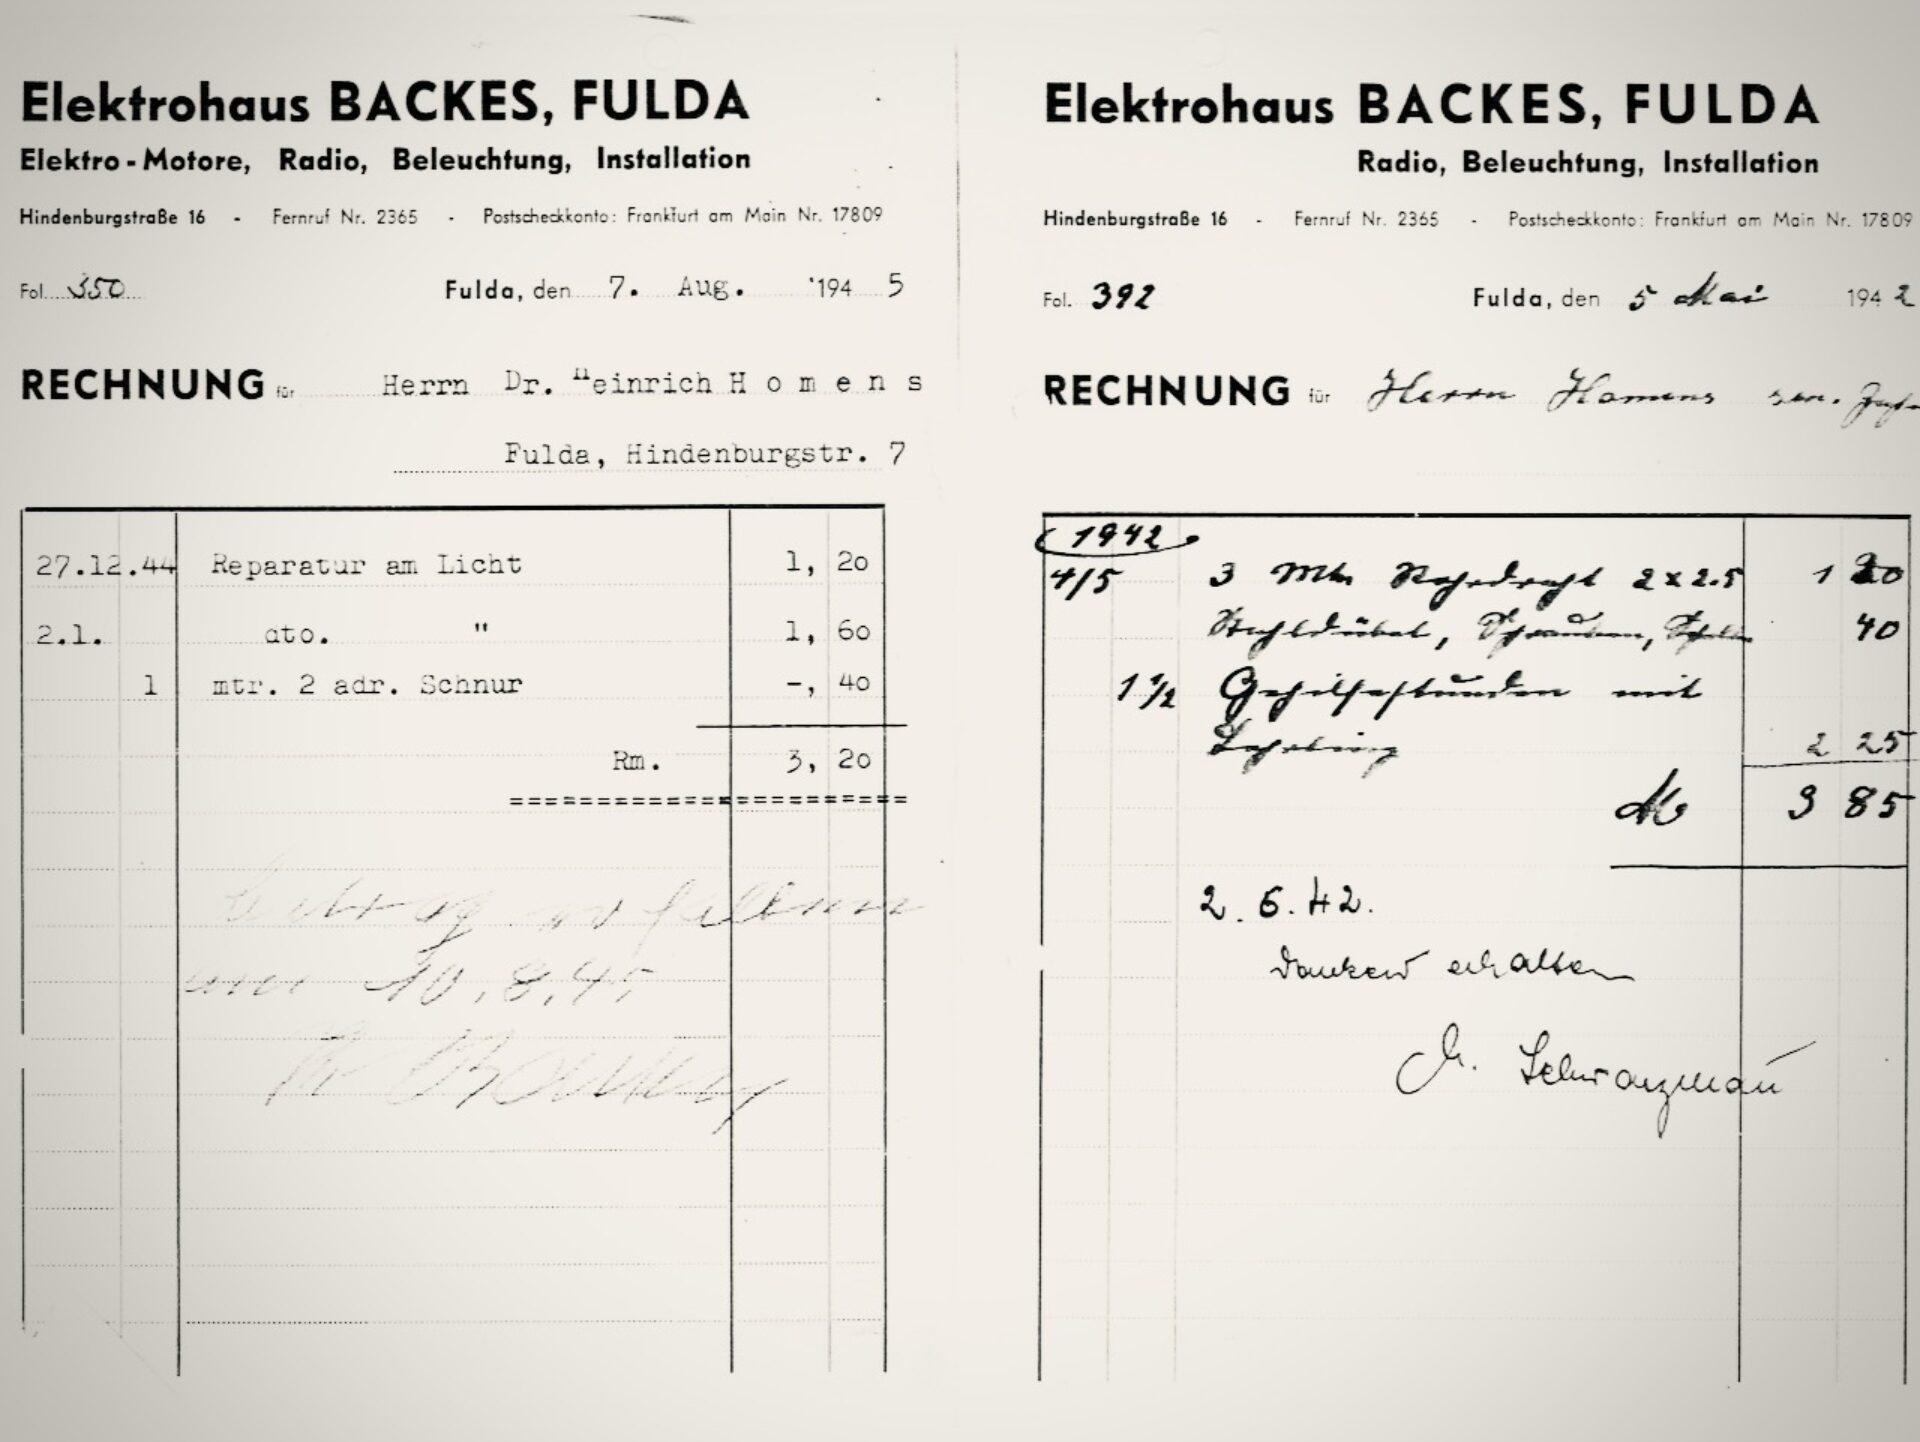 Elektrohaus BACKES, FULDA
Elektro-Motore, Radio, Beleuchtung, Installation
Hindenburgstraße 16 - Fernruf Nr. 2365 - Postscheckkonto: Frankfurt am Main Nr. 17809
Fol. 350 Fulda, den 7. Aug. 194 5
RECHNUNG für Herrn Dr. Heinrich Homens
Fulda, Hindenburgstr. 7
27.12.44 Reparatur am Licht 1, 20
2.1. dto. " 1, 60
1 mtr. 2 adr. Schnur -, 40
Rm. 3, 20
Betrag
10.8.45
Elektrohaus BACKES, FULDA
Radio, Beleuchtung, Installation
Hindenburgstraße 16 - Fernruf Nr. 2365 - Postscheckkonto: Frankfurt am Main Nr. 17809
Fol. 392 Fulda, den 5 Mai 194 2
RECHNUNG für Herrn Homens sen.
1942
4/5 3 Mtr Rohrdraht 2 x 2.5 1 20
Stahldübel, Schrauben, 40
1 1/2 Gehilfestunden mit
Lehrling 2 25
M 3 85
2. 6. 42.
dankend erhalten